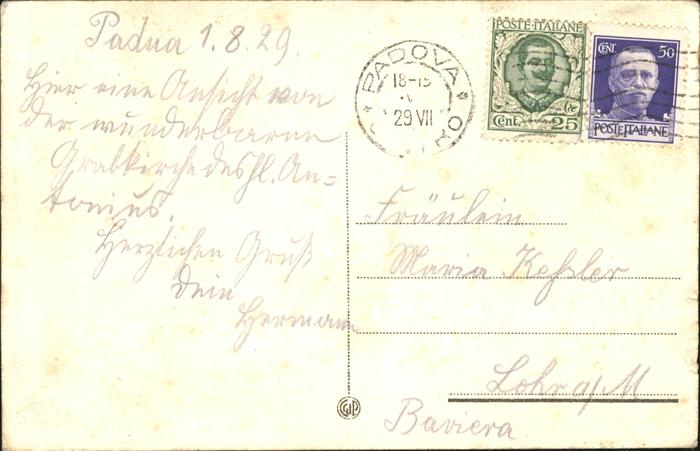 Padua 1.8.29.
Hier eine Ansicht von
der wunderbaren
Grabkirche des hl. An=
tonius.
Herzlichen Gruß
Dein
Hermann
PADOVA
18-19
29 VII
POSTE ITALIANE
Cent. 25
CENT. 50
POSTE ITALIANE
Fräulein
Maria Keßler
Lohr a/M
Baviera